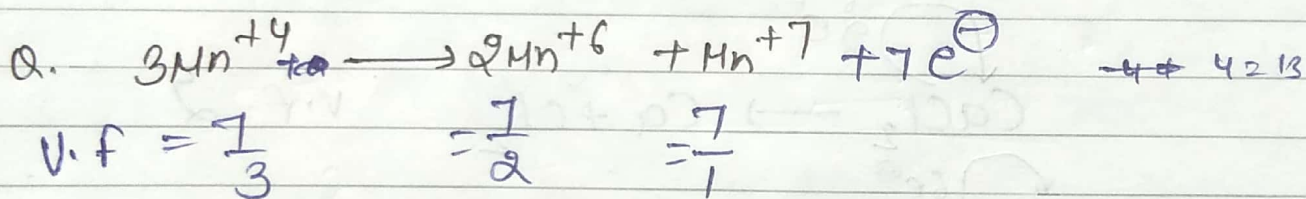 Q. 3Mn^{+4} ⟶ 2Mn^{+6} + Mn^{+7} + 7e^{⊖} 4=13
V.f = 7/3 = 7/2 = 7/1